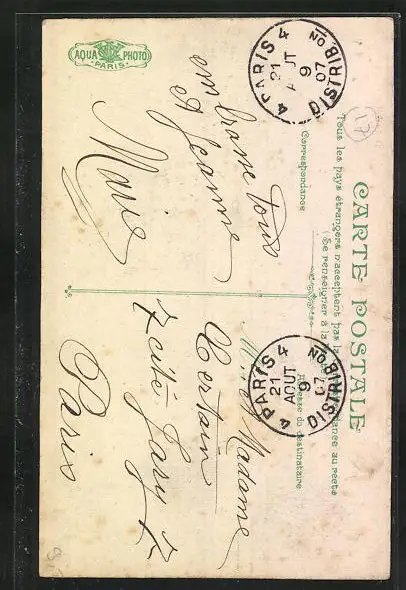 CARTE POSTALE
Tous les pays étrangers n'acceptent pas la correspondance au recto
(Se renseigner à la
Correspondance
Adresse du destinataire
17
PARIS 4
21
9
07
DISTRIBON
PARIS 4
21
AOUT
9
07
DISTRIBON
embrasse tous
et Jeanne
Marie
Madame
7 cité
Paris
AQUA PHOTO
PARIS